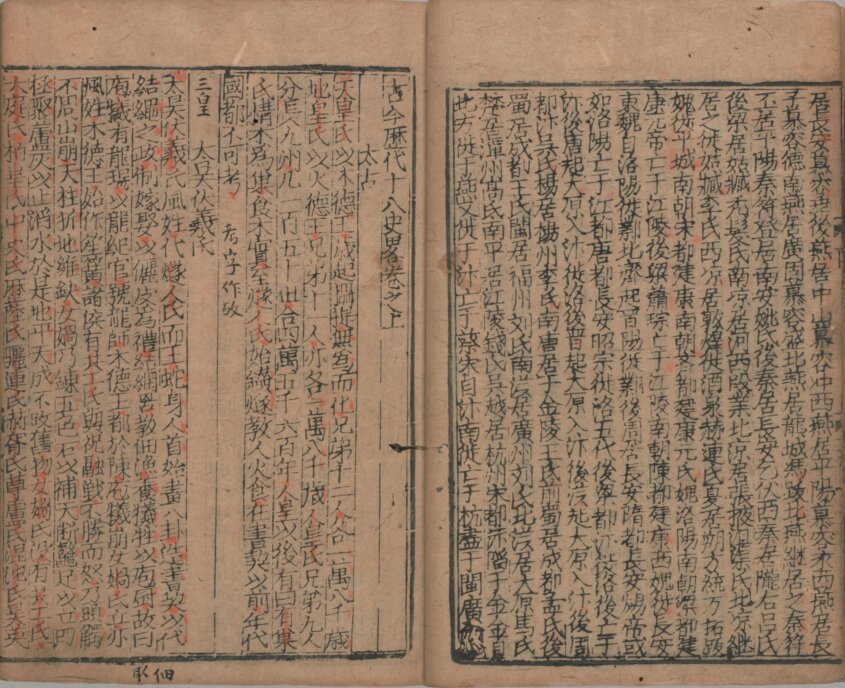 居長安慕容垂後燕居中山慕容冲西燕居平陽慕容永西燕居長
子慕容德南燕居廣固慕容 北燕居龍城馮跋北燕繼居之秦苻
丕居平陽秦苻登居南安姚 後秦居長安乞伏西秦居隴右吕氏
後梁居姑臧禿髮氏南凉居河西段業北凉居張掖沮渠氏北凉繼
居之徙姑臧李氏西凉居敦煌徙酒泉赫連氏夏居朔方統方拓跋
魏徙平城南朝宋都建康南朝齊都建康元氏魏洛陽南朝梁都建
康元帝亡于江陵後梁蕭琮亡于江陵南朝陳都建康西魏徙長安
東魏自洛陽徙鄴北齊起晋陽徙鄴後周居長安隋都長安煬帝或
如洛陽亡于江都唐都長安昭宗徙洛五代後梁都汴徙洛後亡于
汴後唐起大原入汴徙洛後晋起大原入汴後漢起大原入汴後周
都汴吳氏楊居揚州李氏南唐居于金陵王氏前蜀居成都孟氏後
蜀居成都王氏閩居福州刘氏南漢居廣州刘氏北漢居大原馬氏
楚居潭州高氏南平居江陵錢氏吳越居杭州宋都汴 于金金自
北方徙于燕又徙于汴亡于蔡宋自汴南徙亡于杭盡于閩廣
古今歷代十八史畧卷之上
太古
天皇氏以木德王歲起攝提無爲而化兄弟十二人各一萬八千歲
地皇氏以火德王兄弟十一人亦各一萬八千歲人皇氏兄弟九人
分長九州凡一百五十世合四萬五千六百年人皇以後有曰有巢
氏構木爲巢食木實至燧人氏始鑚燧教人火食在書契以前年代
國都不可考 考字作攷
三皇 太昊伏羲氏
太昊伏羲氏風姓代燧人氏而王蛇身人首始畫八卦造書契以代
結繩之政制嫁娶以儷皮爲禮結網罟教佃漁養犧牲以庖厨故曰
庖犧有龍瑞以龍紀官號龍師木德王都於陳庖犧崩女媧氏立亦
風姓木德王始作笙簧諸侯有共工氏與祝融戰不勝而怒乃頭觸
不周山崩天柱折地維缺女媧乃鍊五色石以補天斷鼇足以立四
極聚蘆灰以止滔水於是地平天成不改舊物女媧氏沒有共工氏
大庭氏栢皇氏中央氏歷陸氏驪連氏赫胥氏尊盧氏混沌氏昊英